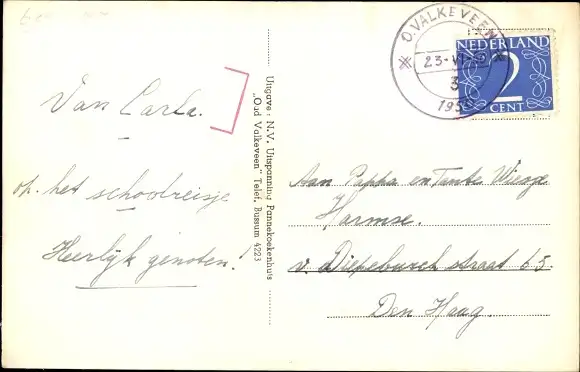 Van Carla.
op. het schoolreisje
Heerlijk genoten!
Uitgave: N.V. Uitspanning Pannekoekenhuis
„Oud Valkeveen" Telef. Bussum 4223
O. VALKEVEEN
23-VI
3
195
NEDERLAND
2
CENT
Aan Pappa en Tante Wiesje
Harmse.
v. Diepeburch straat 65.
Den Haag.